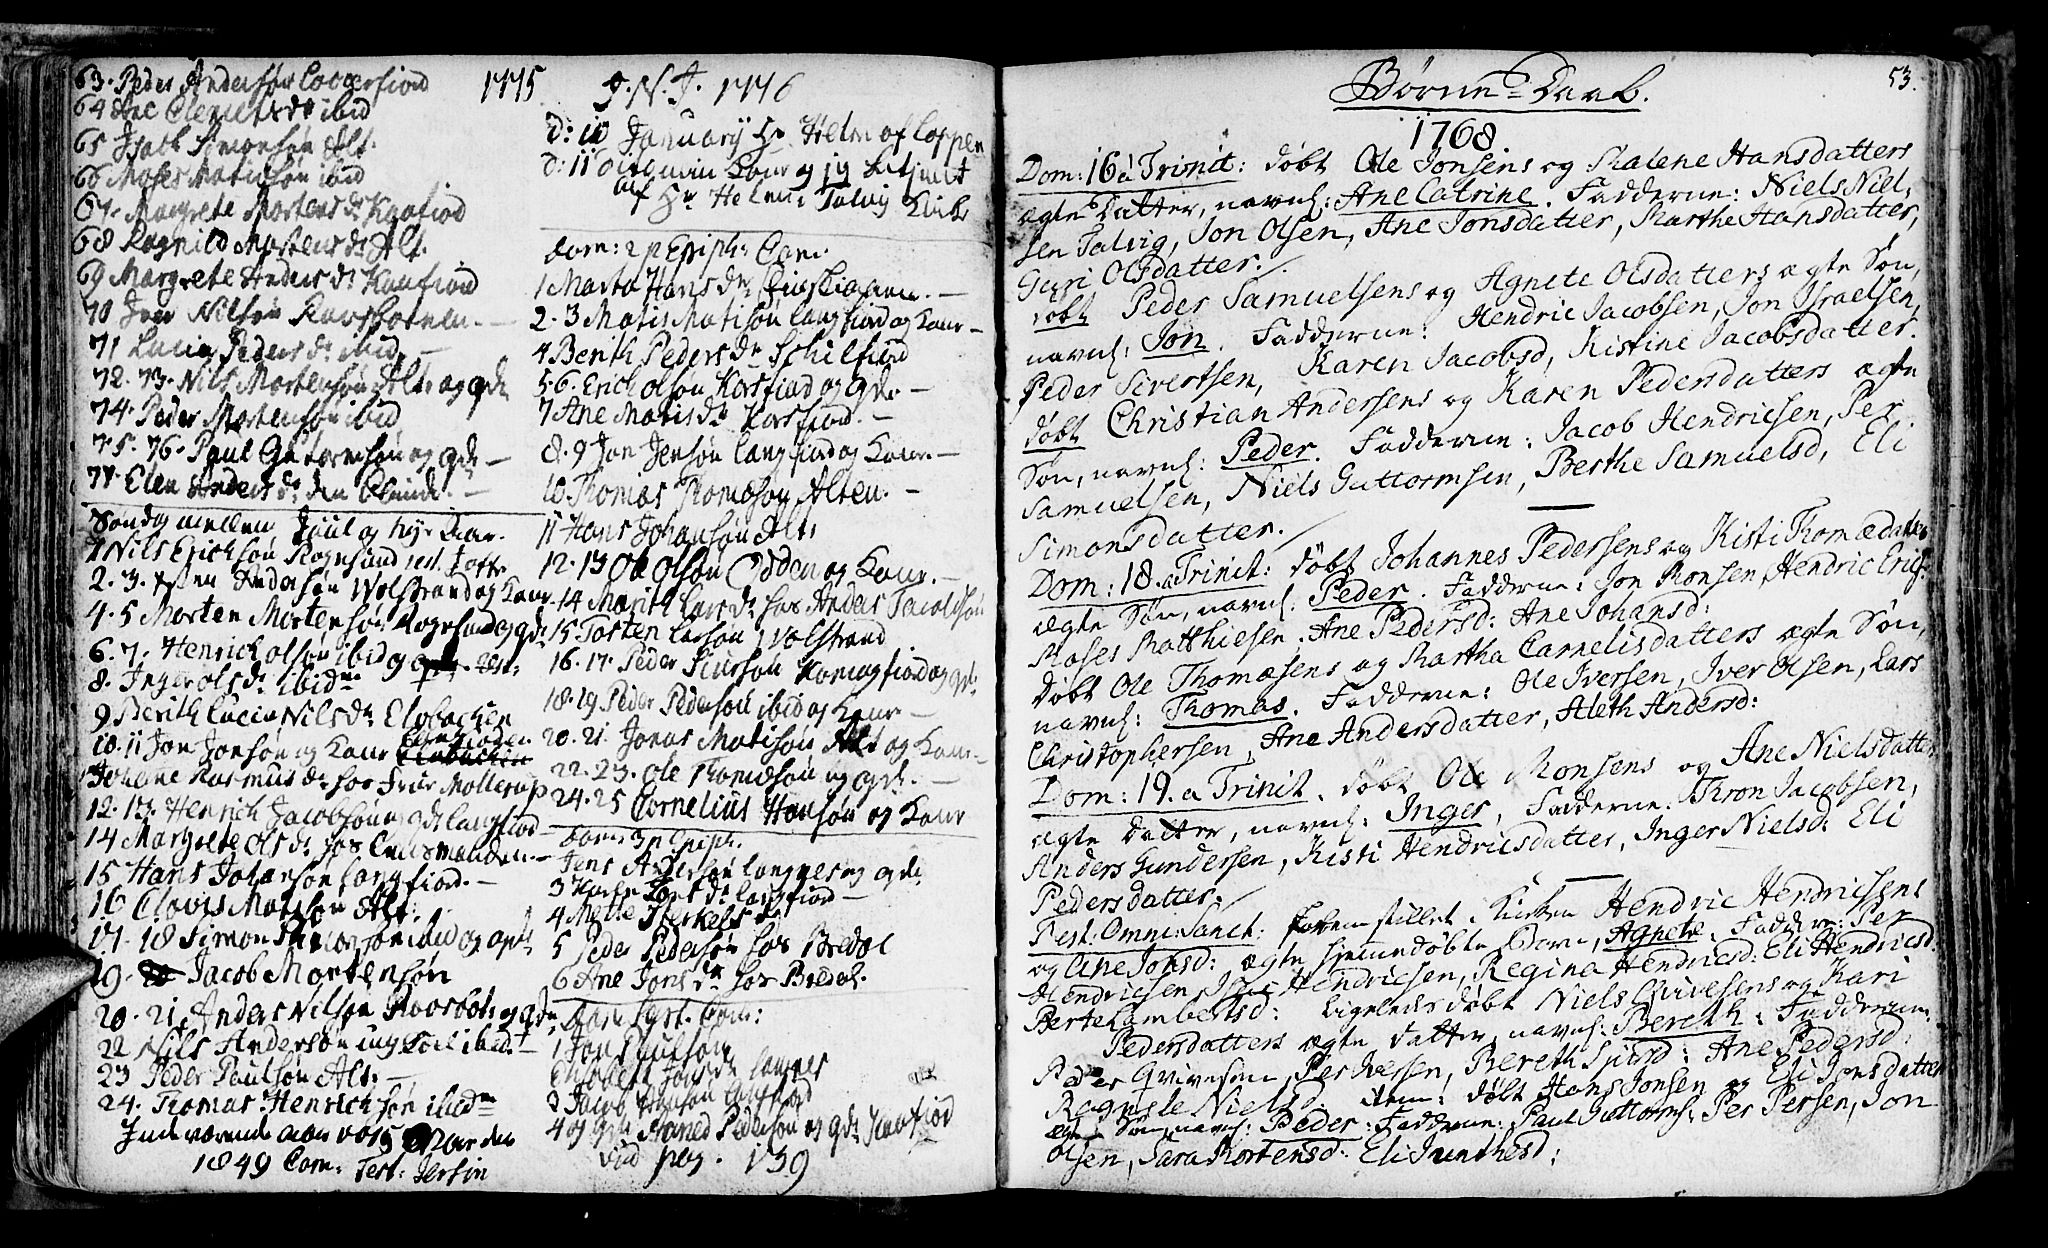 1775
63. Peder Andersøn Cobbersiord
64 Ane Clemetsdr ibid
65 Isach Simonsøn Alt.
66 Moses Matisøn ibid
67. Margrete Mortensdr Kaafiord
68 Ragnild Mortensdr Alt.
69 Margrete Andersdr Kaafiord
70 Iver Nilsøn
71 Lucia Pedersdr ibid
72. 73. Nils Mortensøn Alt og qde
74. Peder Mortensøn ibid
75. 76. Paul Guttormsøn og qde
77 Elen Andersdr
Søndag mellem Juul og nyt Aar.
1 Nils Erichsøn Rognsund
2. 3. Andersøn Wolstrand og Kone
4. 5 Morten Mortensøn Rognsund og qde
6. 7. Henrich Olsøn ibid og
8. Inger Olsdr ibidm
9 Berith Lucia Nilsdr Elvbachen
10. 11 Jon Jonsøn og Kone Langfiorden
Johane Rasmusdr hos Frue Mollerup
12. 13. Henrich Jacobsøn og qde Langfiord
14 Margrete Olsdr hos Lensmanden
15 Hans Johansøn Langfiord.
16 Clovis Matisøn Alt.
17. 18 Simon Simonsøn ibid og qde
19. Jacob Mortensøn
20. 21. Anders Nilsøn og qde
22 Nils Andersøn ibid
23 Peder Paulsøn Alt.
24. Thomas Henrichsøn ibidm
Indeværende Aar
1849 Com: Test: Jersin
J. N. J. 1776
d: 10 January Hr Helm af Loppen
d: 11 min Kone og jeg betjent
af Hr Helm i Talvig Kirke
Dom: 2 p Epiph: Com.
1 Marta Hansdr
2. 3 Matis Matisøn Langfiord og Kone
4 Berith Pedersdr
5. 6. Erich Olsøn Korsfiord og qde.
7 Ane Matisdr Korsfiord.
8. 9 Jon Jensøn Langfiord og Kone
10. Thomas Thomesøn Alten.
11 Hans Johansøn Alt:
12. 13 Ole Olsøn Odden og Kone.
14 Marith Larsdr hos Anders Jacobsøn
15. Torsten Larsøn Wolstrand
16. 17. Peder Siursøn Komagfiord og qde
18. 19 Peder Pedersøn ibid og Kone
20. 21. Jonas Matisøn Alt og Kone
22. 23. Ole Thomæsøn og qde.
24. 25 Cornelius Hansøn og Kone
Dom: 3 p Epiph.
Jens Andersøn Langnes og qde
3 Larsdr Langfiord
4 Mette Sterkelsdr
5 Peder Pedersøn hos Bredal
6 Ane Jonsdr hos Bredal.
1 Jon Paulsøn
Elisabeth Jonsdr Langnes
2 Jacob Langfiord
4 og qde Pedersøn og qde Kaafiord
vid pag. 139
53.
Børne-Daab.
1768
Dom: 16 a Trinit: døbt Ole Jonsens og Malene Hansdatters
ægte Datter, navnl: Ane Catrine. Fadderne: Niels Niel,
sen Talvig, Jon Olsen, Ane Jonsdatter, Marthe Hansdatter,
Guri Olsdatter.
døbt Peder Samuelsens og Agnete Olsdatters ægte Søn,
navnl: Jon. Fadderne: Hendric Jacobsen, Jon Israelsen,
Peder Sivertsen, Karen Jacobsd, Kistine Jacobsdatter.
døbt Christian Andersens og Karen Pedersdatters ægte
Søn, navnl: Peder. Fadderne: Jacob Hendricsen, Per
Samuelsen, Niels Guttormsen, Berthe Samuelsd, Eli
Simonsdatter.
Dom: 18. a Trinit: døbt Johannes Pedersens og Kisti Thomædatters
ægte Søn, navnl: Peder. Fadderne: Jon Monsen, Hendric Erics.
Moses Matthiesen, Ane Pedersd: Ane Johansd:
døbt Ole Thomæsens og Martha Cornelisdatters ægte Søn,
navnl: Thomas. Fadderne: Ole Iversen, Iver Olsen, Lars
Christophersen, Ane Andersdatter, Aleth Andersd:
Dom: 19. a Trinit. døbt Ole Monsens og Ane Nielsdatters
ægte Datter, navnl: Inger, Fadderne. Thron Jacobsen,
Anders Gundersen, Kisti Hendricsdatter, Inger Nielsd: Eli
Pedersdatter.
Fest: Omn: Sanct: fremstillet i Kirken Hendric Hendricsens
og Ane Jonsd: ægte hjemmedøbte Barn, Agnete. Faddere: Per
Hendricsen, Isac Hendricsen, Regina Hendricsd: Eli Hendricsd:
Berte Lambertsd: ligeledes døbt Niels Qvivesens og Kari
Pedersdatters ægte Datter, navnl: Bereth. Fadderne:
Peder Qvivesen, Per Iversen, Bereth Siursd: Ane Pedersd:
Ragnele Nielsd. item: døbt Hans Jonsen og Eli Jonsdatters
ægte Søn, navnl: Peder. Fadderne: Paul Guttorms: Per Persen, Jon
Olsen, Sara Mortensd: Eli Junthesd: